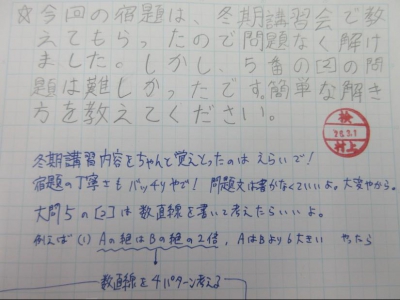 ☆今回の宿題は、冬期講習会で教
えてもらったので問題なく解け
ました。しかし、5番の[2]の問
題は難しかったです。簡単な解き
方を教えてください。
検
村上
冬期講習内容をちゃんと覚えとったのは えらいで!
宿題の丁寧さも バッチリやで! 問題文は書かなくていいよ。大変やから。
大問5の[2]は 数直線を書いて考えたらいいよ。
例えば (1) Aの絶はBの絶の2倍, AはBより6大きい やったら
数直線を4パターン考える